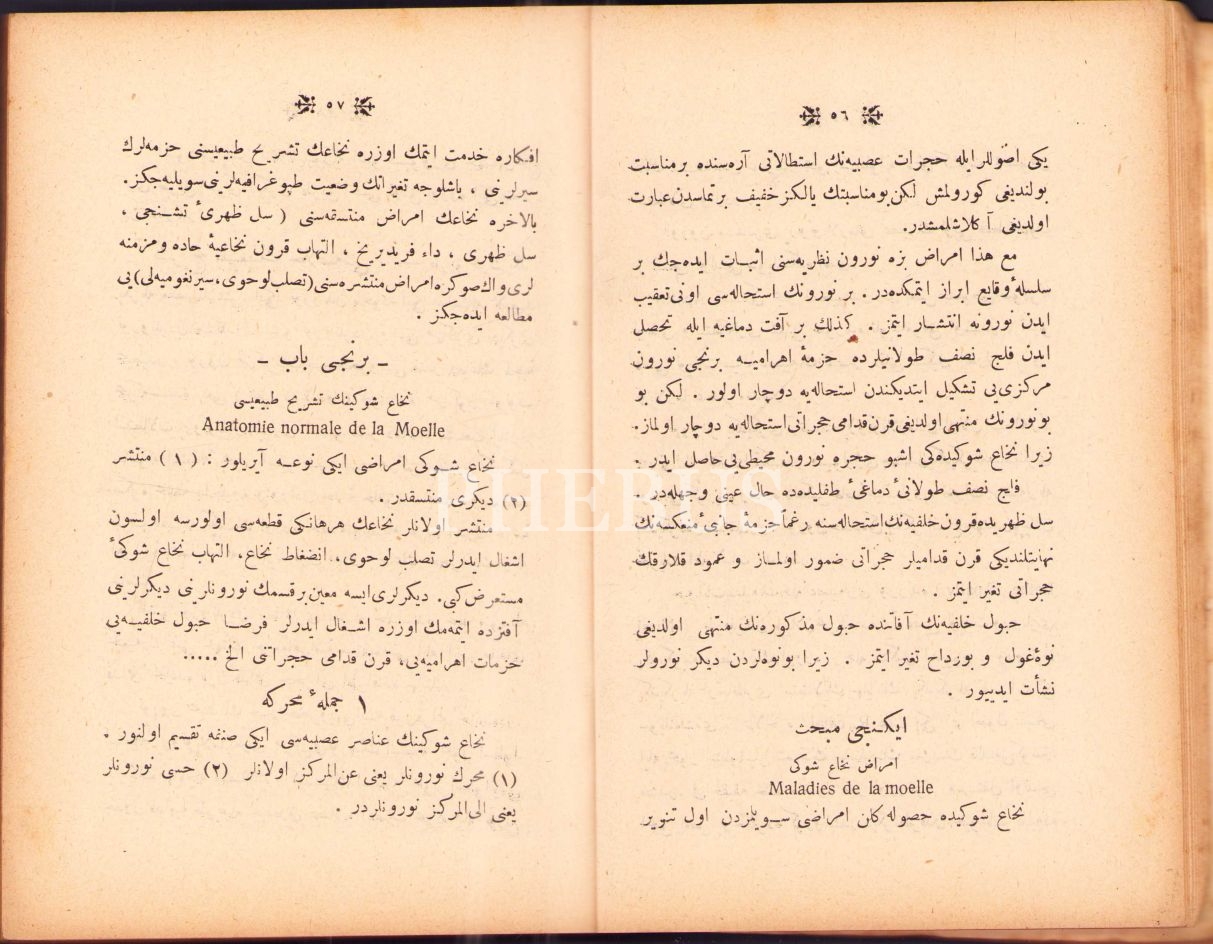 ٥٦
یکی اصوللر ایله حجرات عصبیه‌نك استطالاتی آره‌سنده بر مناسبت
بولندیغی کورولمش لکن بو مناسبتك یالکز خفیف بر تماسدن عبارت
اولدیغی آکلاشلمشدر.
مع هذا امراض بزه نورون نظریه‌سنی اثبات ایده‌جك بر
سلسلهٔ وقایع ابراز ایتمکده‌در. بر نورونك استحاله‌سی اونی تعقیب
ایدن نورونه انتشار ایتمز. کذلك بر آفت دماغیه ایله تحصل
ایدن فلج نصف طولانیلرده حزمهٔ اهرامیه برنجی نورون
مرکزی‌یی تشکیل ایتدیکندن استحاله‌یه دوچار اولور. لکن بو
بو نورونك منتهی اولدیغی قرن قدامی حجراتی استحاله‌یه دوچار اولماز.
زیرا نخاع شوکیده‌کی اشبو حجره نورون محیطی‌یی حاصل ایدر.
فلج نصف طولانیٔ دماغیٔ طفلیده‌ده حال عینی وجهله‌در.
سل ظهریده قرون خلفیه‌نك استحاله‌سنه رغماً حزمهٔ جانبیٔ منعکسه‌نك
نهایتلندیکی قرن قدامیلر حجراتی ضمور اولماز و عمود قلارقك
حجراتی تغیر ایتمز.
حبول خلفیه‌نك آفاتنده حبول مذکوره‌نك منتهی اولدیغی
نوهٔ غول و بورداح تغیر ایتمز. زیرا بو نوه‌لردن دیکر نورولر
نشأت ایدییور.
ایکنجی مبحث
امراض نخاع شوکی
Maladies de la moelle
نخاع شوکیده حصوله کلن امراضی سویلمزدن اول تنویر
٥٧
افکاره خدمت ایتمك اوزره نخاعك تشریح طبیعیسنی حزمه‌لرك
سیرلرینی، باشلوجه تغیراتك وضعیت طپوغرافیه‌لرینی سویلیه‌جکز.
بالآخره نخاعك امراض منتسقه‌سنی (سل ظهریٔ تشنجی،
سل ظهری، داء فریدیریخ، التهاب قرون نخاعیهٔ حاده و مزمنه
لری و اك صوکره امراض منتشره‌سنی (تصلب لوحوی، سیرنغومیه‌لی) یی
مطالعه ایده‌جکز.
- برنجی باب -
نخاع شوکینك تشریح طبیعیسی
Anatomie normale de la Moelle
نخاع شوکی امراضی ایکی نوعه آیریلور: (١) منتشر
(٢) دیکری منتسقدر.
منتشر اولانلر نخاعك هر هانکی قطعه‌سی اولورسه اولسون
اشغال ایدرلر تصلب لوحوی، انضغاط نخاع، التهاب نخاع شوکیٔ
مستعرض کبی. دیکرلری ایسه معین بر قسمك نورونلرینی دیکرلرینی
آفتزده ایتمه‌مك اوزره اشغال ایدرلر فرضا حبول خلفیه‌یی
حزمات اهرامیه‌یی، قرن قدامی حجراتنی الخ .....
١ جملهٔ محرکه
نخاع شوکینك عناصر عصبیه‌سی ایکی صنفه تقسیم اولنور.
(١) محرك نورونلر یعنی عن المرکز اولانلر (٢) حسی نورونلر
یعنی الی المرکز نورونلردر.